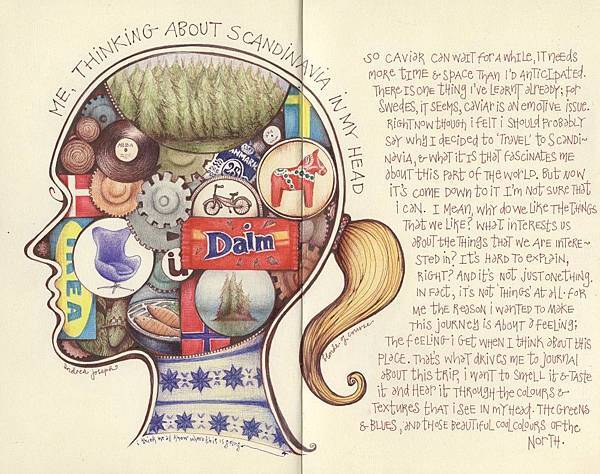 ME, THINKING ABOUT SCANDINAVIA IN MY HEAD
ABBA
DANMARK
IKEA
ü
Daim
andrea joseph
blonde of course
i think we all know where this is going
SO CAVIAR CAN WAIT FOR A WHILE, IT NEEDS
MORE TIME & SPACE THAN I'D ANTICIPATED.
THERE IS ONE THING I'VE LEARNT ALREADY; FOR
SWEDES, IT SEEMS, CAVIAR IS AN EMOTIVE ISSUE.
RIGHT NOW THOUGH I FELT I SHOULD PROBABLY
SAY WHY I DECIDED TO 'TRAVEL' TO SCANDI-
NAVIA, & WHAT IT IS THAT FASCINATES ME
ABOUT THIS PART OF THE WORLD. BUT NOW
IT'S COME DOWN TO IT I'M NOT SURE THAT
I CAN. I MEAN, WHY DO WE LIKE THE THINGS
THAT WE LIKE? WHAT INTERESTS US
ABOUT THE THINGS THAT WE ARE INTERE-
STED IN? IT'S HARD TO EXPLAIN,
RIGHT? AND IT'S NOT JUST ONE THING.
IN FACT, IT'S NOT 'THINGS' AT ALL. FOR
ME THE REASON I WANTED TO MAKE
THIS JOURNEY IS ABOUT A FEELING;
THE FEELING I GET WHEN I THINK ABOUT THIS
PLACE. THAT'S WHAT DRIVES ME TO JOURNAL
ABOUT THIS TRIP, I WANT TO SMELL IT & TASTE
IT AND HEAR IT THROUGH THE COLOURS &
TEXTURES THAT I SEE IN MY HEAD. THE GREENS
& BLUES, AND THOSE BEAUTIFUL COOL COLOURS OF THE
NORTH.